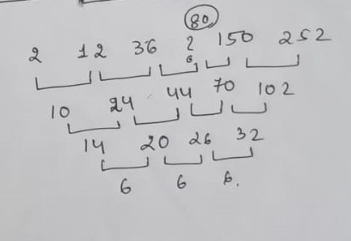 80
2 12 36 ? 150 252
10 24 44 70 102
14 20 26 32
6 6 6.